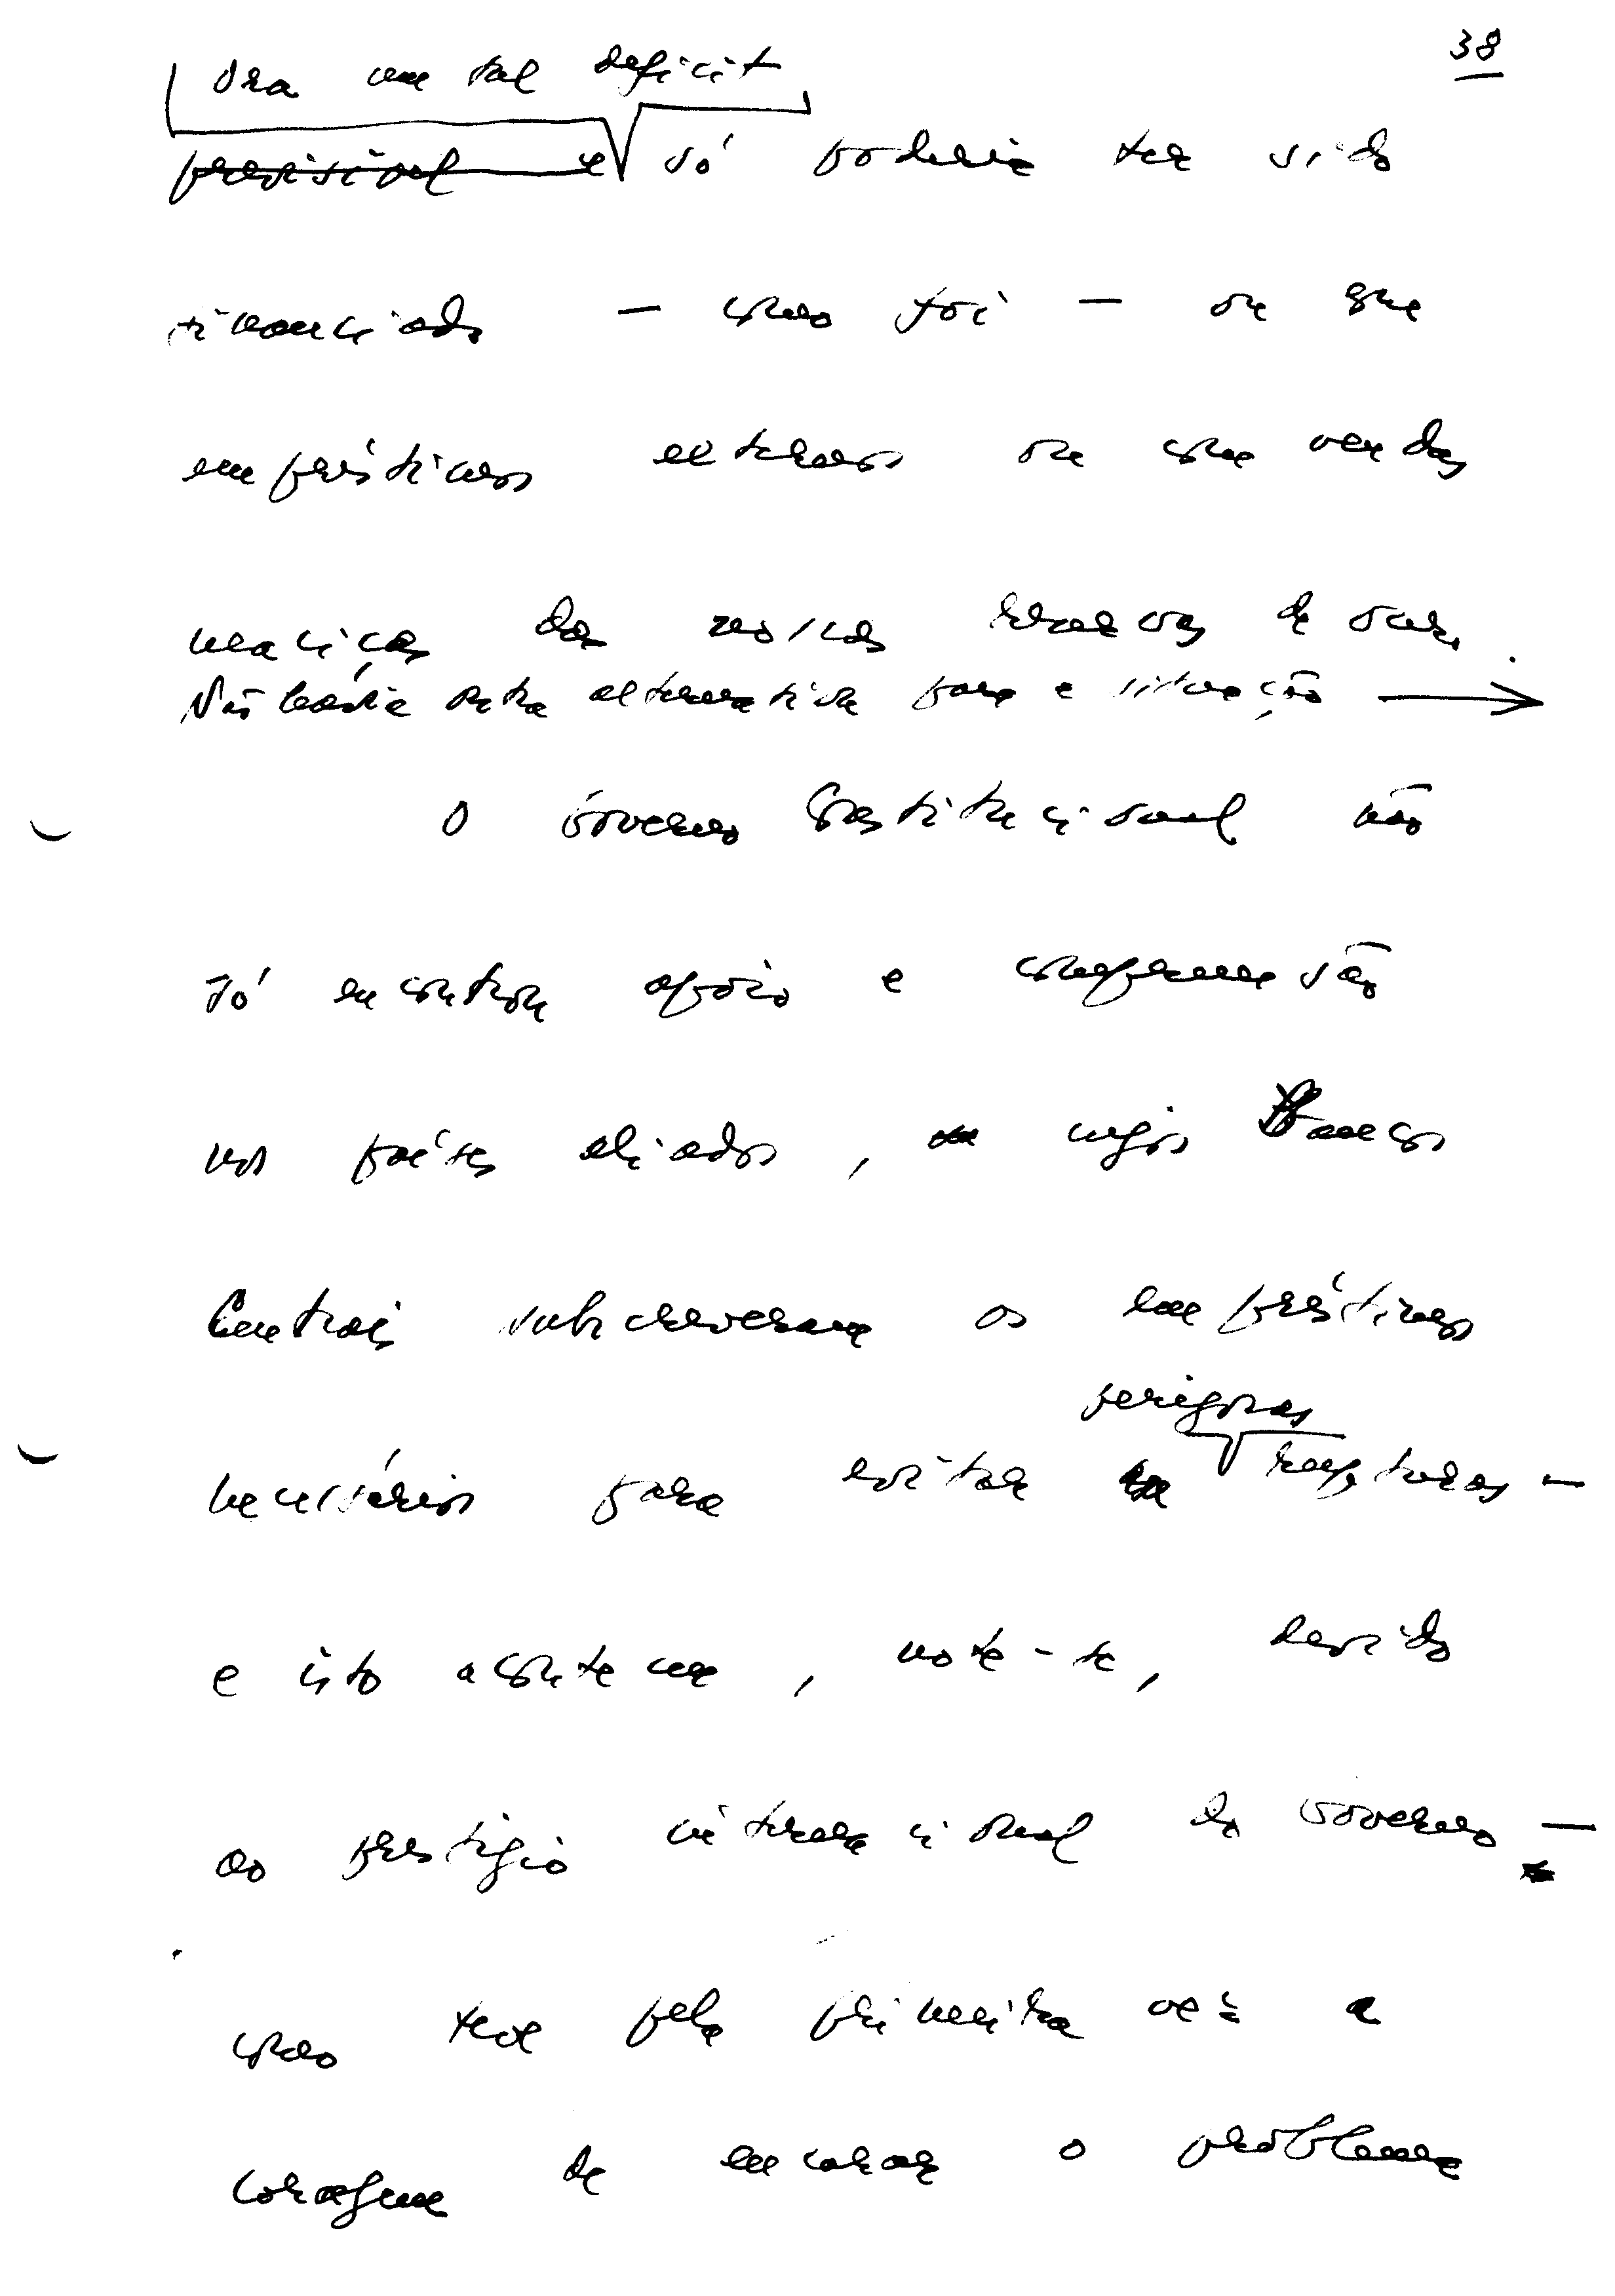 38
Ora um tal deficit
previsível e só poderia ter sido
financiado — como foi — ou que
empréstimos externos ou com vendas
maciças das nossas reservas de ouro.
Não havia outra alternativa para a situação →
O Governo Constitucional não
só encontrou apoio e compreensão
nos países aliados, cujos Bancos
Centrais subscreveram os empréstimos
perigosas
necessários para evitar rupturas —
e isto aconteceu, note-se, devido
ao prestígio internacional do Governo —
como teve pela primeira vez a
coragem de encarar o problema